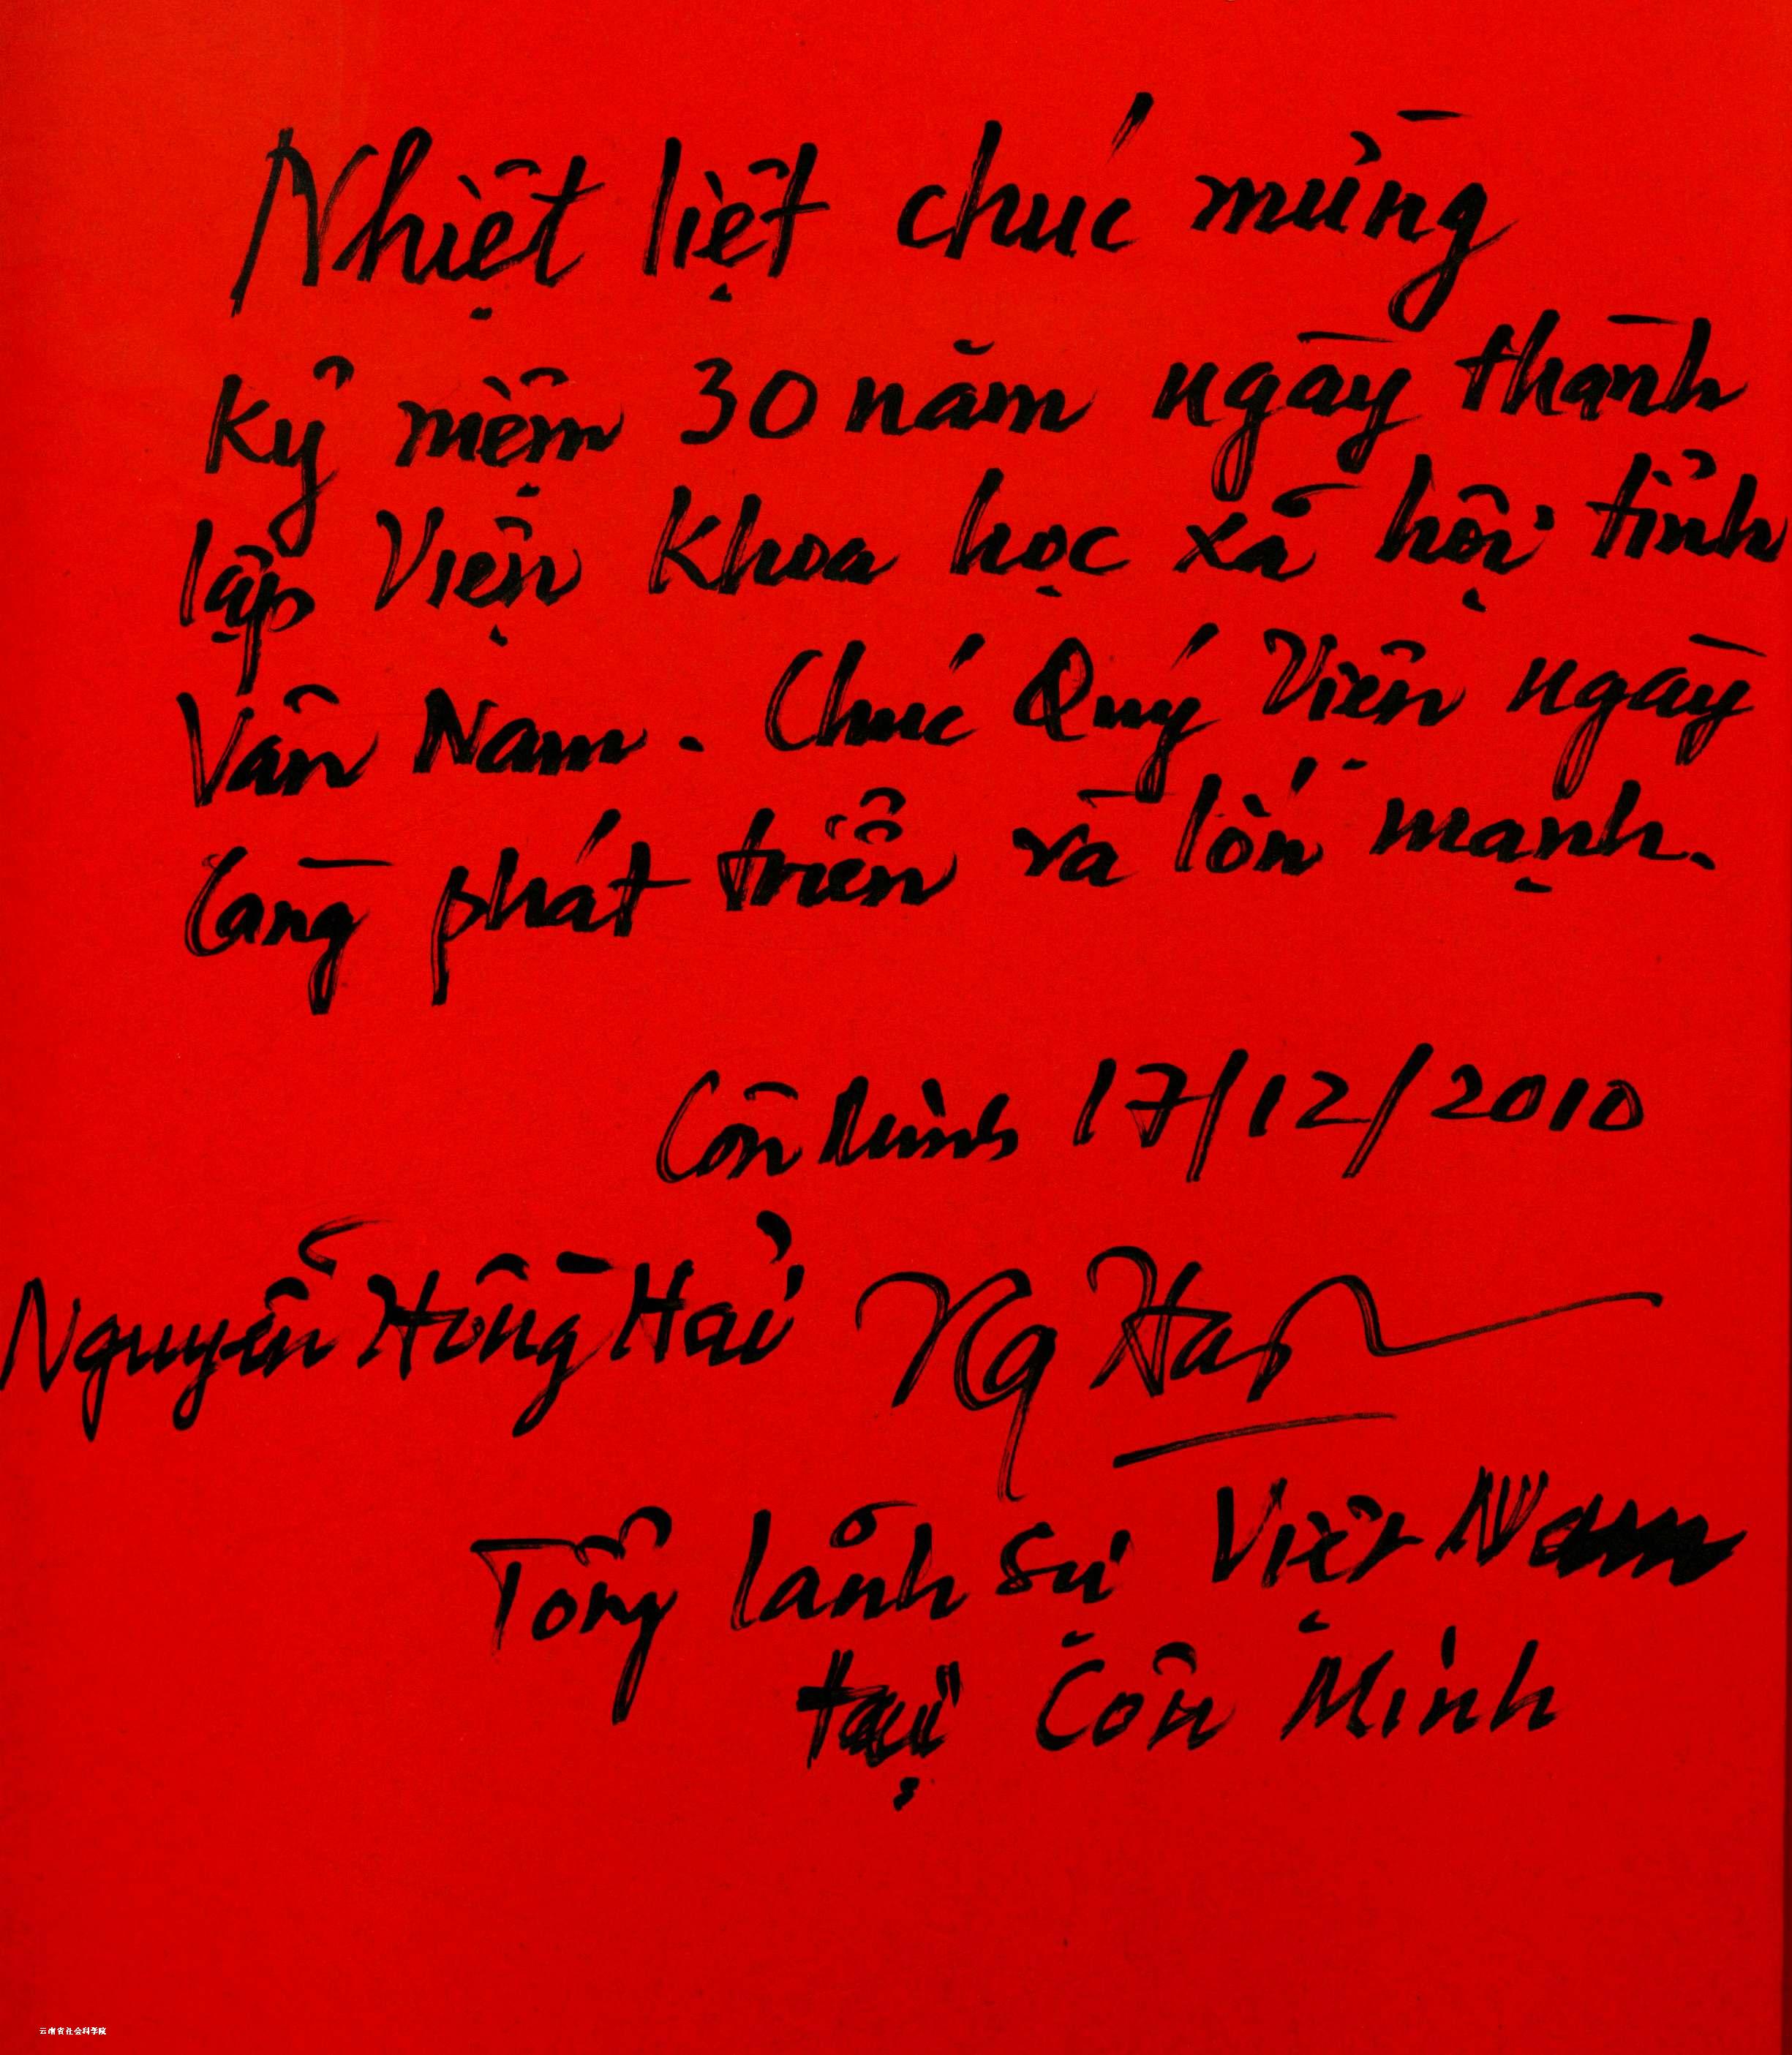 Nhiệt liệt chúc mừng
kỷ niệm 30 năm ngày thành
lập Viện Khoa học xã hội tỉnh
Vân Nam. Chúc Quý Viện ngày
càng phát triển và lớn mạnh.
Côn Minh 17/12/2010
Nguyễn Hồng Hải
Tổng lãnh sự Việt Nam
tại Côn Minh
云南省社会科学院